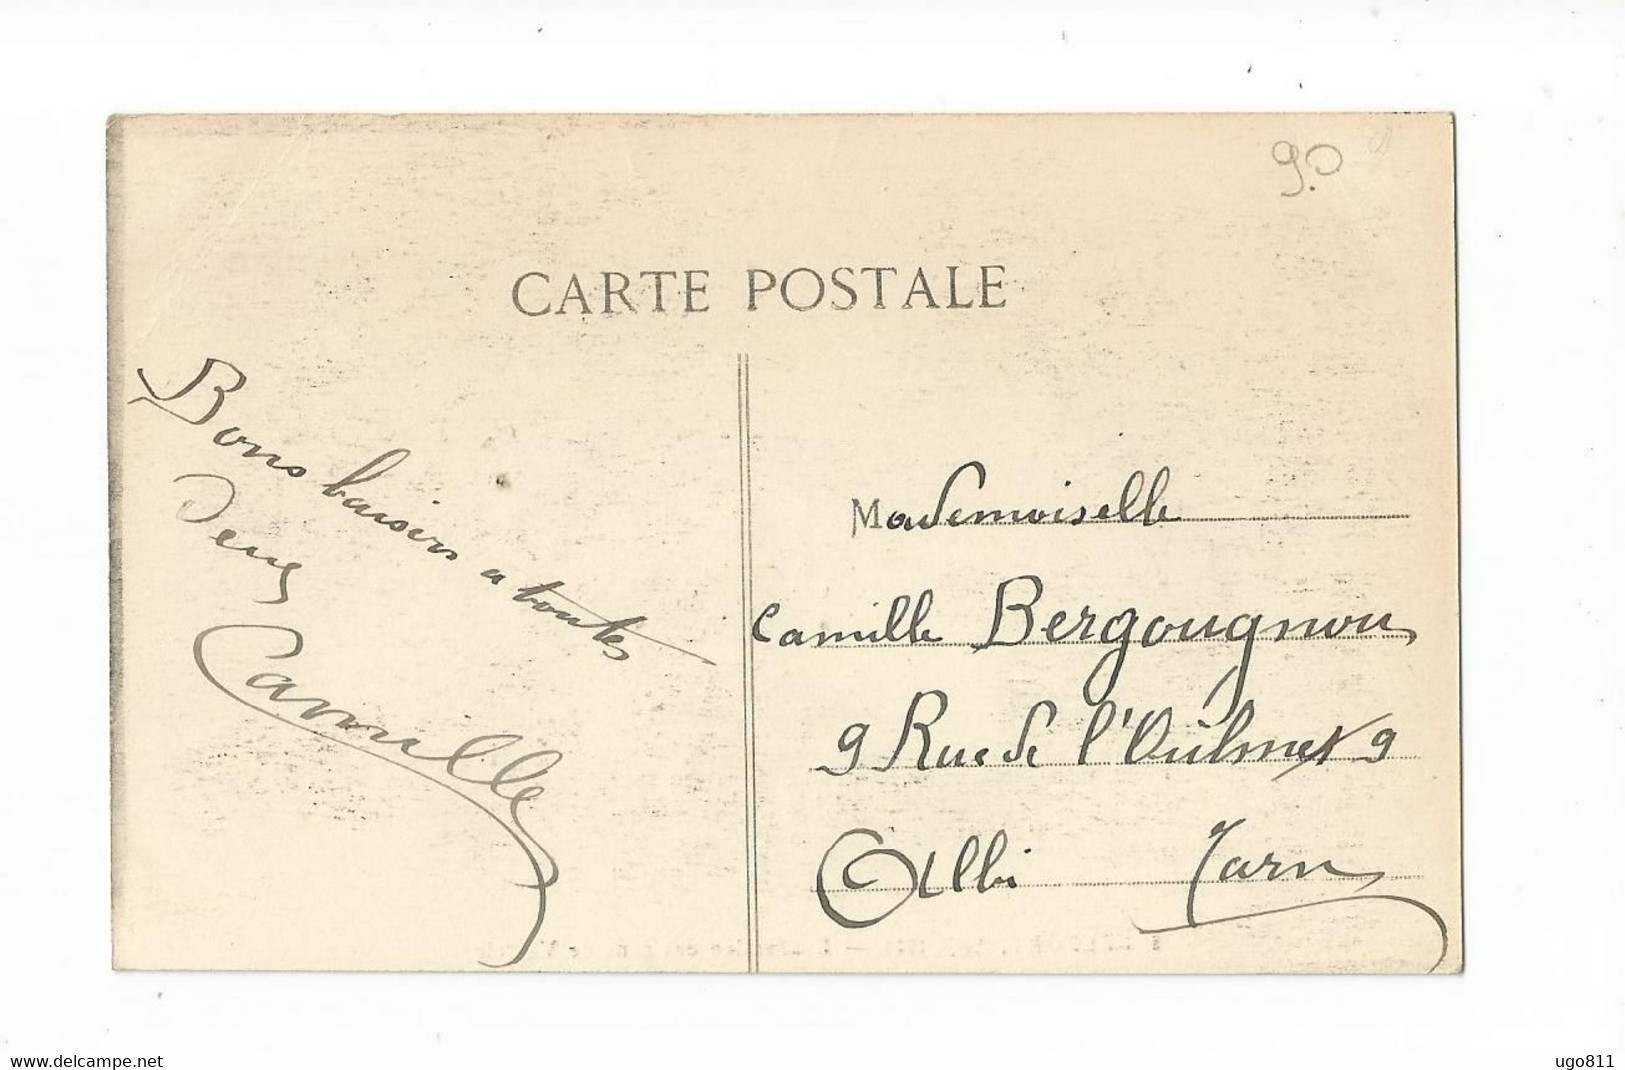 9.0
CARTE POSTALE
Bons baisers a toutes
Deux
Camille
Mademoiselle
Camille Bergougnou
9 Rue de l'Oulmet 9
Albi Tarn
www.delcampe.net
ugo811